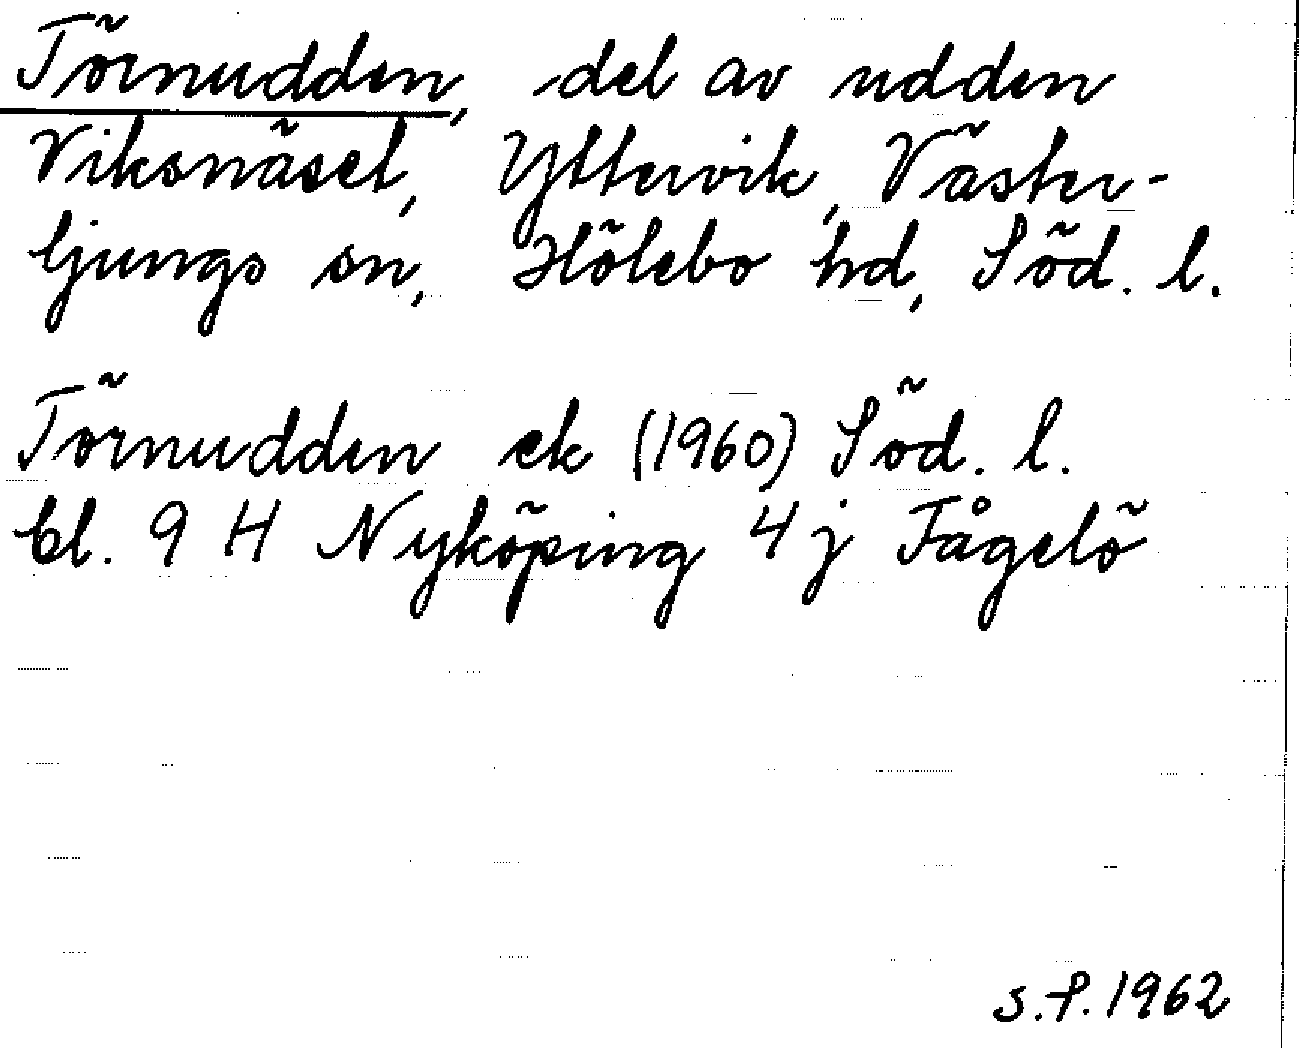 Törnudden, del av udden
Viksnäset, Yttervik, Väster-
ljungs sn, Hölebo hd, Söd. l.
Törnudden ek (1960) Söd. l.
bl. 9 H Nyköping 4 j Fågelö
S.P. 1962